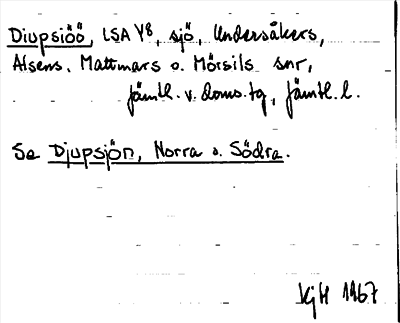 Diupsiöö, LSA V8, sjö, Undersåkers,
Alsens, Mattmars o. Mörsils snr,
Jämtl. v. doms. tg, Jämtl. l.
Se Djupsjön, Norra o. Södra.
KjH 1967